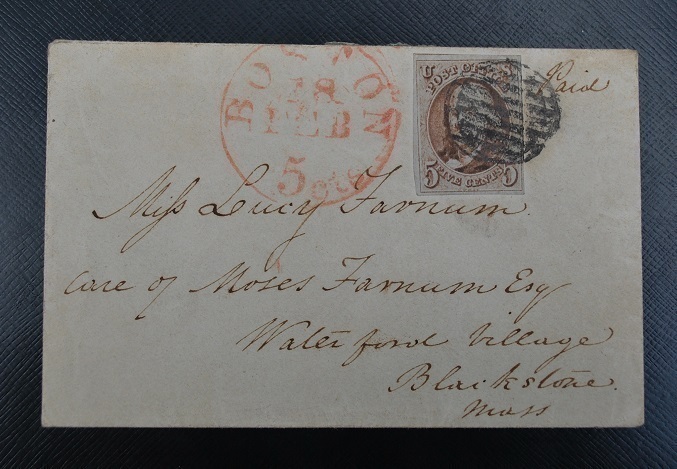 BOSTON
18
FEB
5 cts
U
POST OFFICE
FIVE CENTS
5 5
Paid
Miss Lucy Farnum.
Care of Moses Farnum Esq
Waterford Village
Blackstone.
Mass